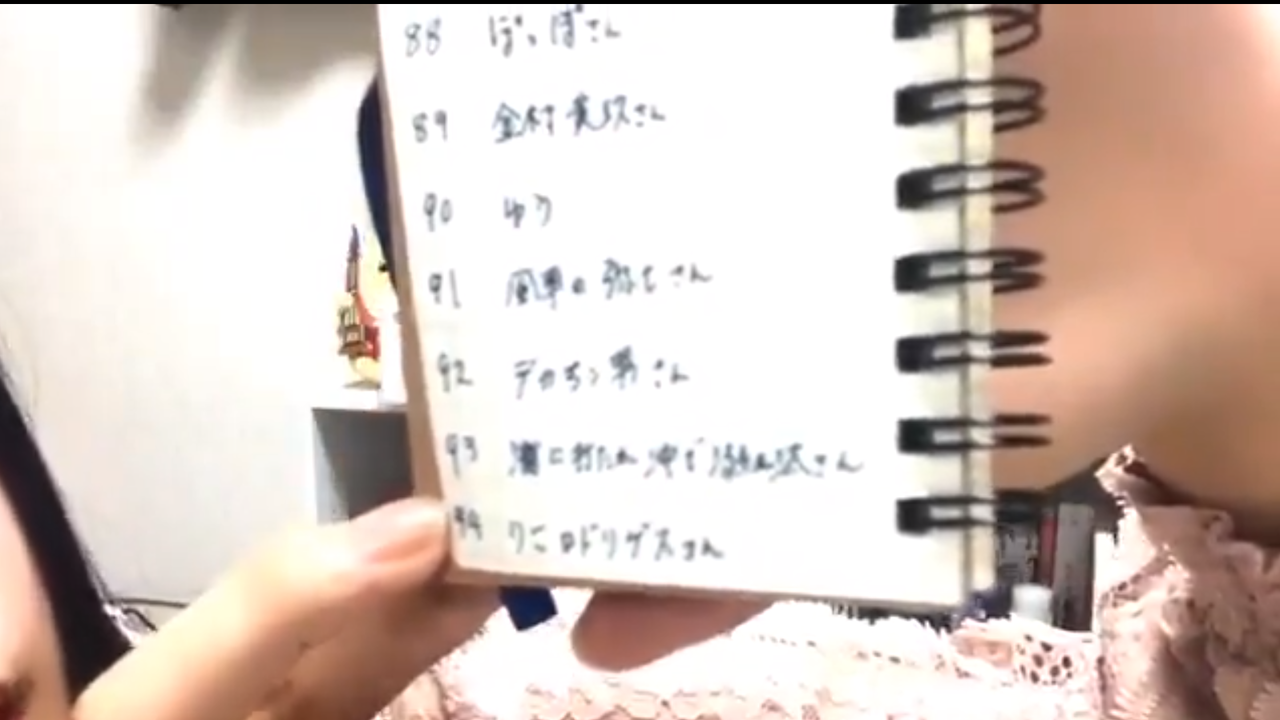 88 ぽっぽさん
89 金村 美玖さん
90 ゆう
91 風車の弥七さん
92 デカチン男さん
93 に打たれ
94 ロドリゲスさん